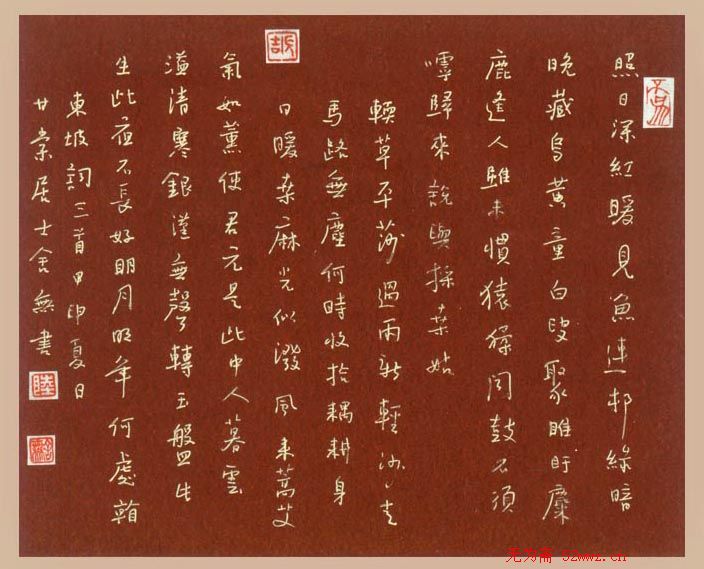 照日深紅暖見魚連邨綠暗
晚藏烏黃童白叟聚睢盱麋
鹿逢人雖未慣猿猱聞鼓不須
嘑歸來說與採桑姑
輭草平莎過雨新輕沙走
馬路無塵何時收拾耦耕身
日暖桑麻光似潑風來蒿艾
氣如薰使君元是此中人暮雲
溢清寒銀漢無聲轉玉盤此
生此夜不長好明月明年何處看
東坡詞三首甲申夏日
甘棠居士舍無書
陸
无为斋 52wwz.cn